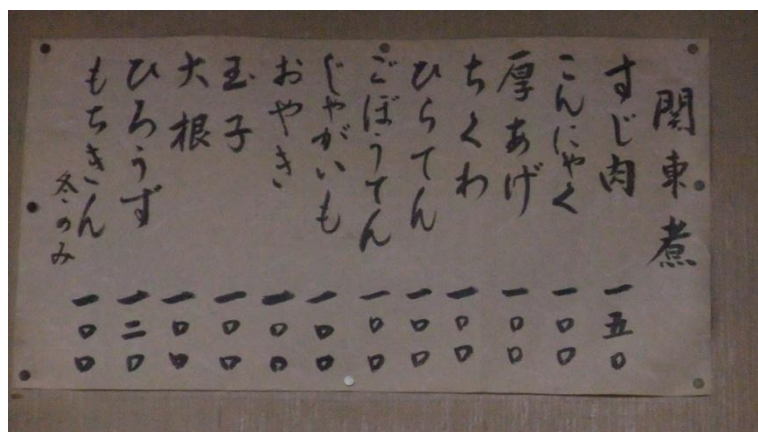 関東煮
すじ肉 一五〇
こんにゃく 一〇〇
厚あげ 一〇〇
ちくわ 一〇〇
ひらてん 一〇〇
ごぼうてん 一〇〇
じゃがいも 一〇〇
おやき 一〇〇
玉子 一〇〇
大根 一〇〇
ひろうず 一二〇
もちきん 一〇〇
冬のみ